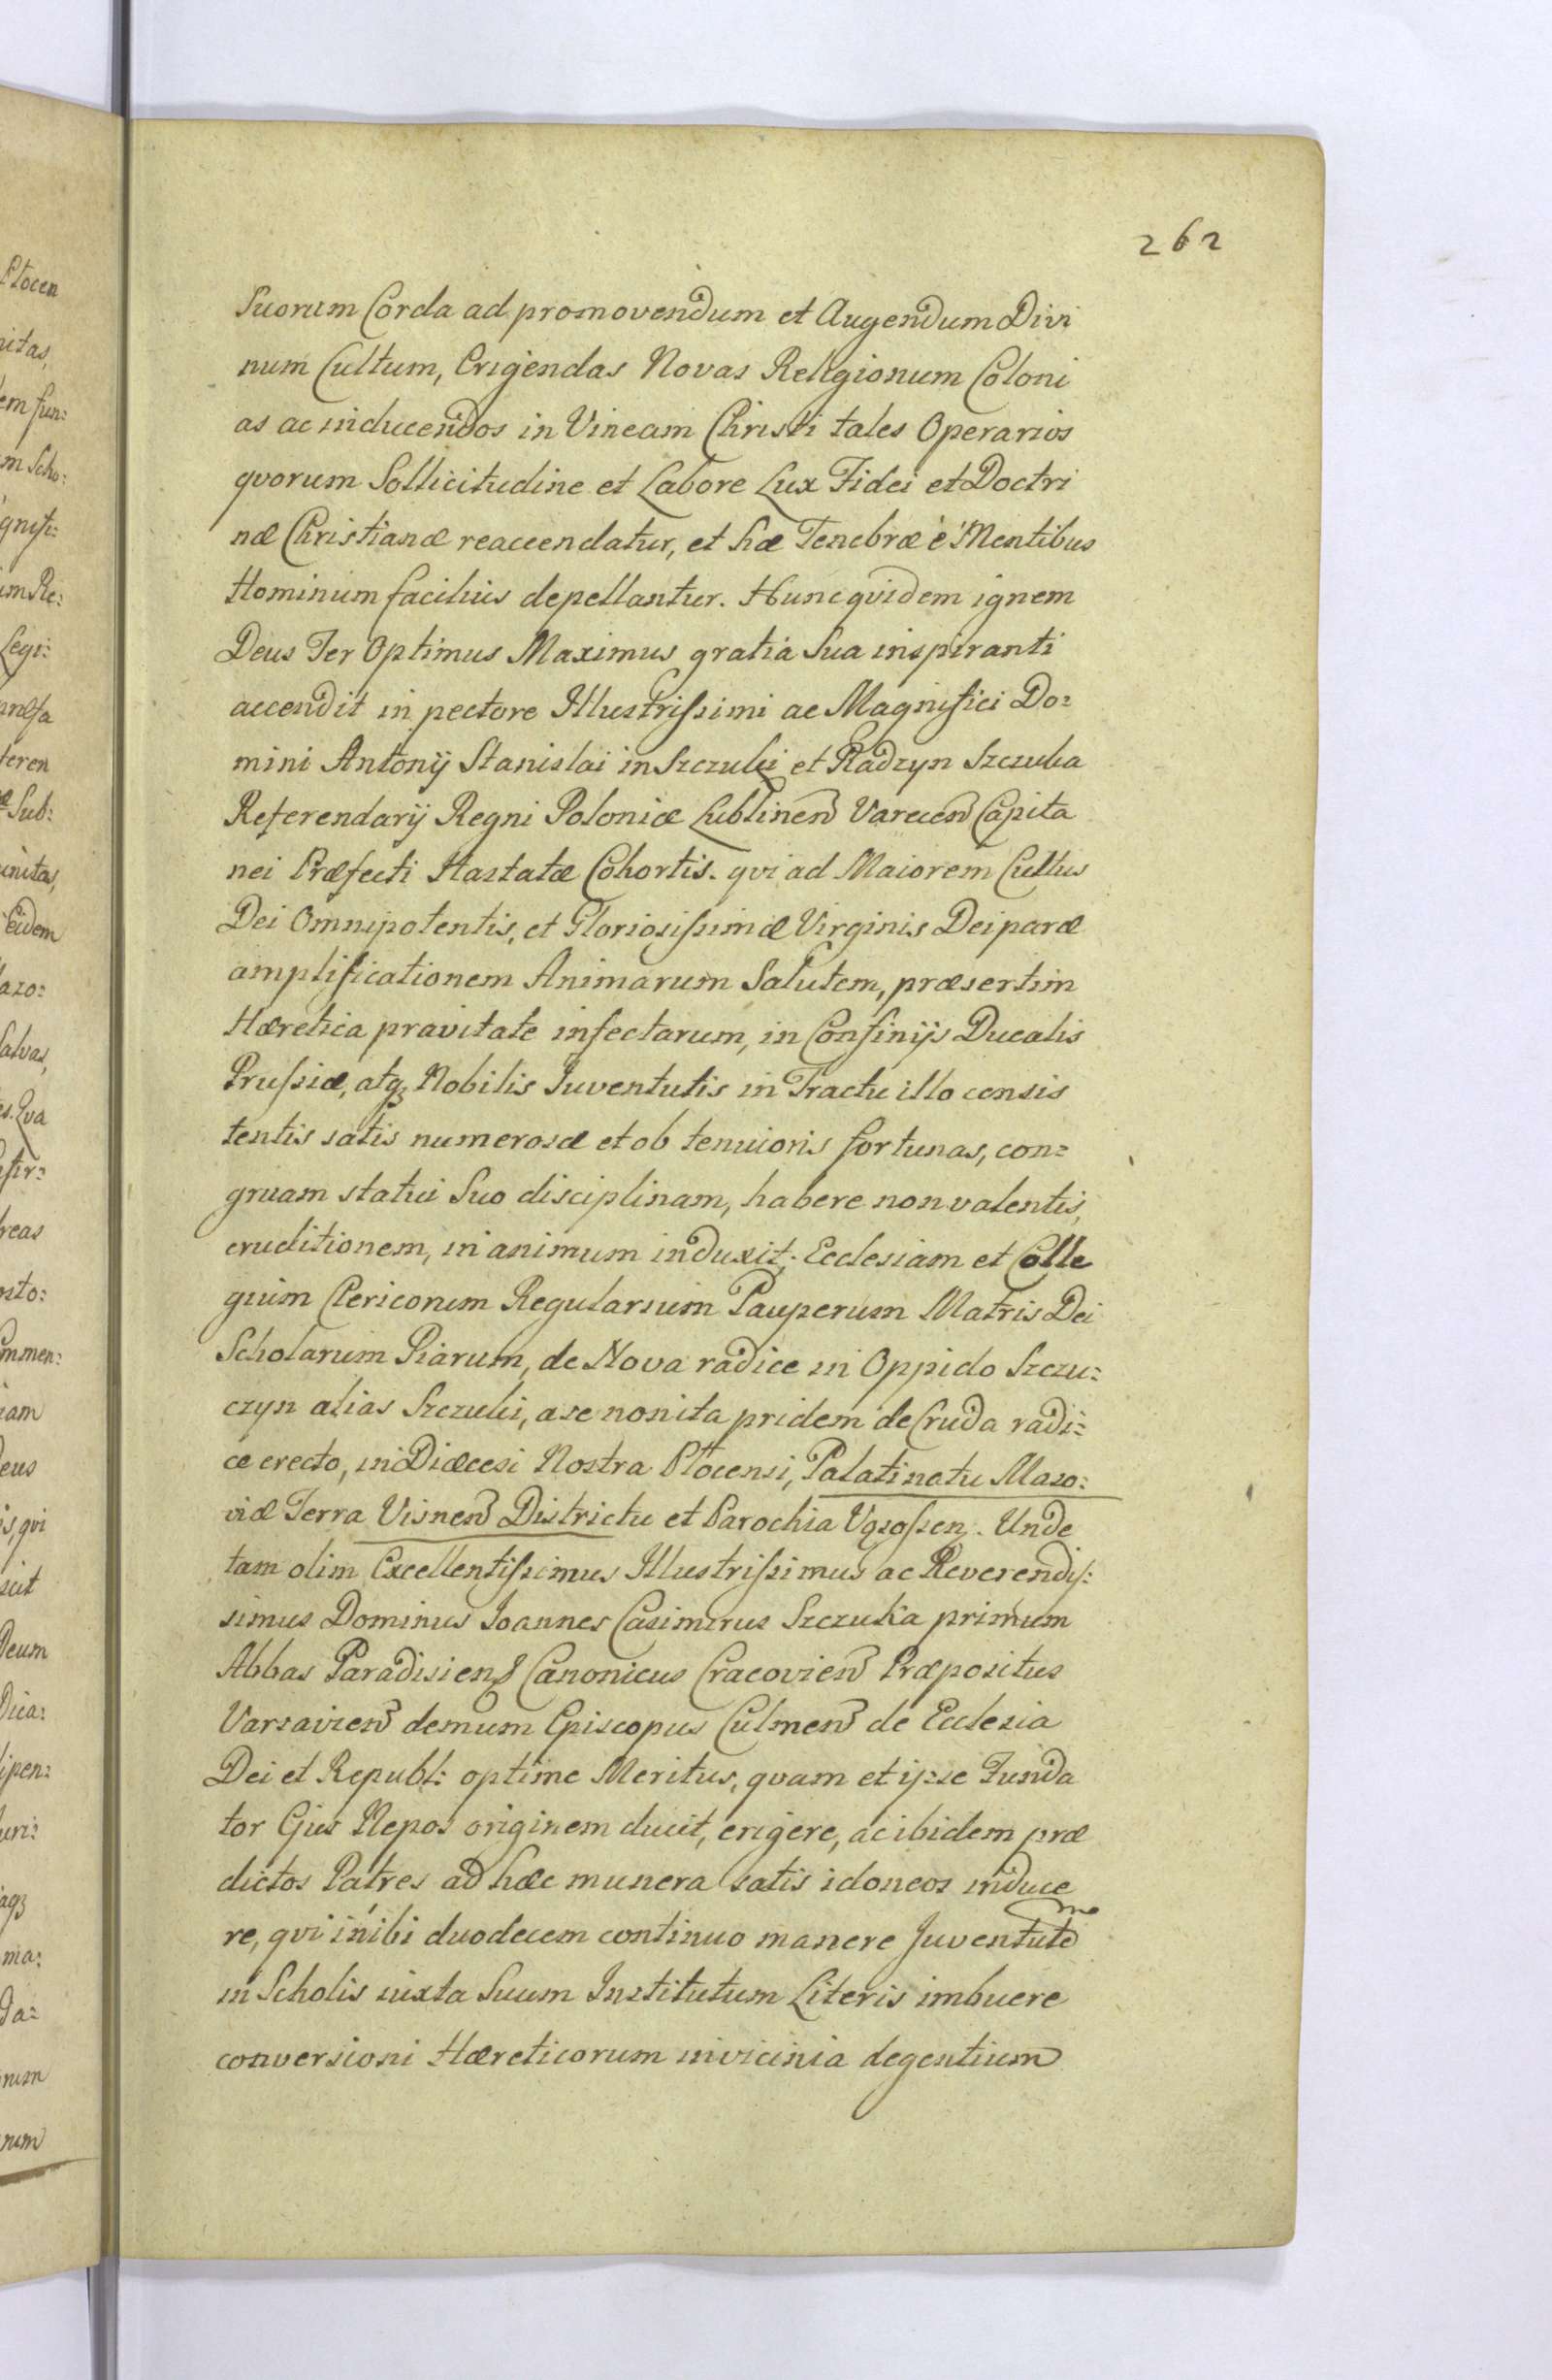 262
Suorum Corda ad promovendum et Augendum Divi
num Cultum, Erigendas Novas Religionum Coloni
as ac inducendos in Vineam Christi tales Operarios
qvorum Sollicitudine et Labore Lux Fidei et Doctri
næ Christianæ reaccendatur, et hæ Tenebræ è Mentibus
Hominum facilius depellantur. Hunc qvidem ignem
Deus Ter Optimus Maximus gratia Sua inspiranti
accendit in pectore Illustrissimi ac Magnifici Do=
mini Antonij Stanislai in Szczuki et Radzyn Szczuka
Referendarij Regni Poloniæ Lublinen Varecen Capita
nei Præfecti Hastatæ Cohortis. qvi ad Maiorem Cultus
Dei Omnipotentis, et Gloriosissimæ Virginis Deiparæ
amplificationem Animarum Salutem, præsertim
Hæretica pravitate infectarum, in Confinijs Ducalis
Prussiæ, atq Nobilis Iuventutis in Tractu illo consis
tentis satis numerosæ et ob tenuioris fortunas, con=
gruam statui Suo disciplinam, habere non valentis,
eruditionem, in animum induxit; Ecclesiam et Colle
gium Clericorum Regularium Pauperum Matris Dei
Scholarum Piarum, de Nova radice in Oppido Szczu=
czyn alias Szczuki, a se non ita pridem de Cruda radi=
ce erecto, in Diæcesi Nostra Plocensi, Palatinatu Maso=
viæ Terra Visnen Districtu et Parochia Vąsossen. Unde
tam olim Excellentissimus Illustrissimus ac Reverendis=
simus Dominus Ioannes Casimirus Szczuka primum
Abbas Paradisiens Canonicus Cracovien Præpositus
Varsavien demum Episcopus Culmen de Ecclesia
Dei et Republ: optime Meritus, qvam et ipse Funda
tor Ejus Nepos originem ducit, erigere, ac ibidem præ
dictos Patres ad hæc munera satis idoneos induce
re, qvi inibi duodecem continuo manere Juventute
me
in Scholis iuxta Suum Institutum Literis imbuere
conversioni Hæreticorum in vicinia degentium
Plocen
nitas,
em fun:
m Scho:
gnifi:
um Re:
Legi:
feren
Sub:
Eidem
azo:
alvas,
s. Qva
reas
sto:
ommen:
iam
Deus
is, qvi
scit
Deum
Dica:
ipen:
uri:
aq
ma:
da=
rum
rum